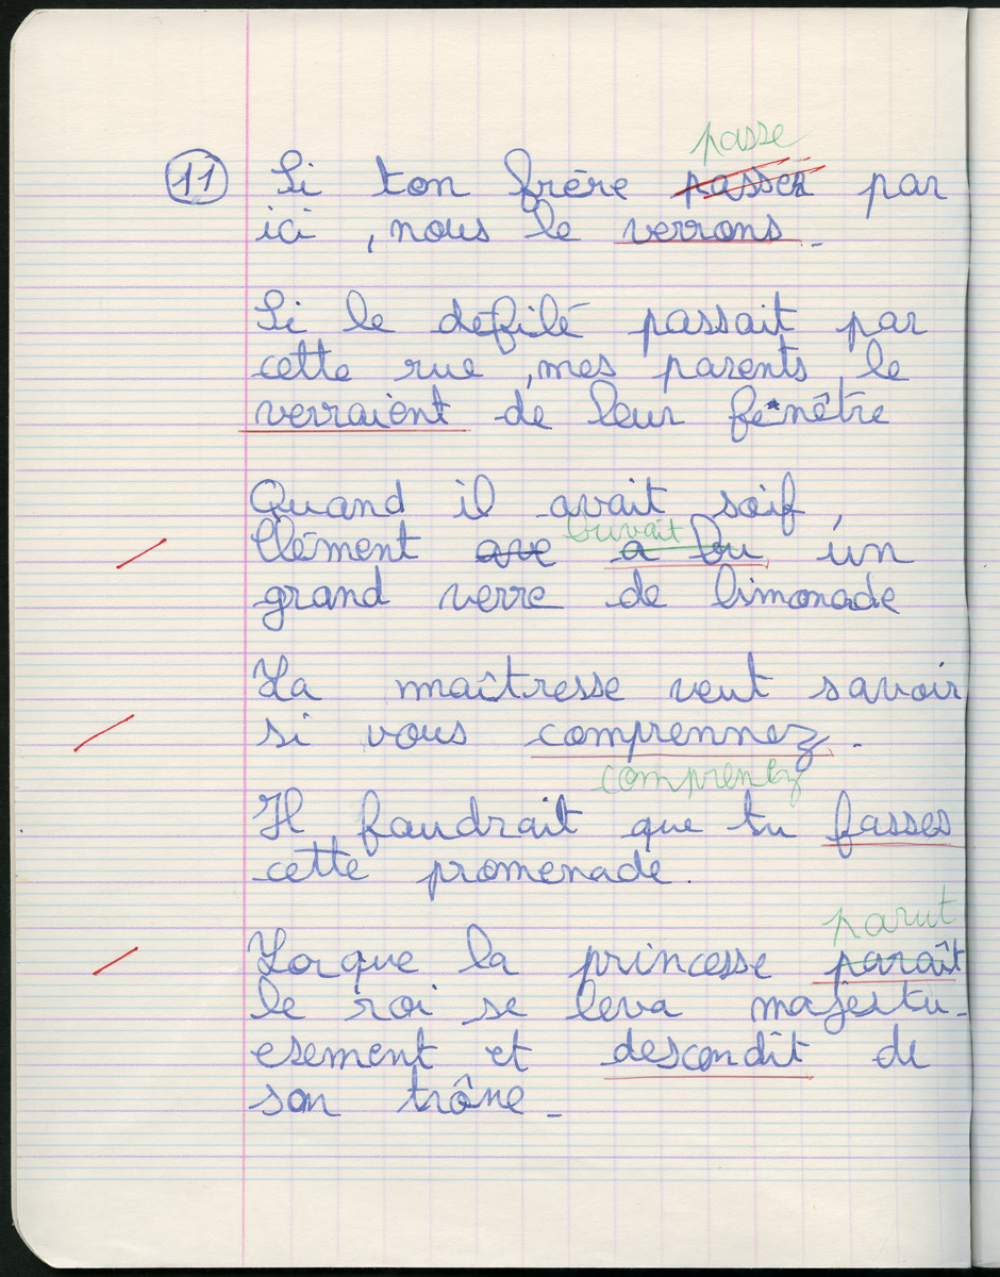 passe
11 Si ton frère passer par
ici , nous le verrons.
Si le defilé passait par
cette rue , mes parents le
verraient de leur fenêtre
Quand il avait soif ,
buvait
Clément ave a bu un
grand verre de limonade
La maîtresse veut savoir
si vous comprennez .
comprenez
Il faudrait que tu fasses
cette promenade .
parut
Lorque la princesse paraît
le roi se leva majestu-
esement et descendît de
son trône .